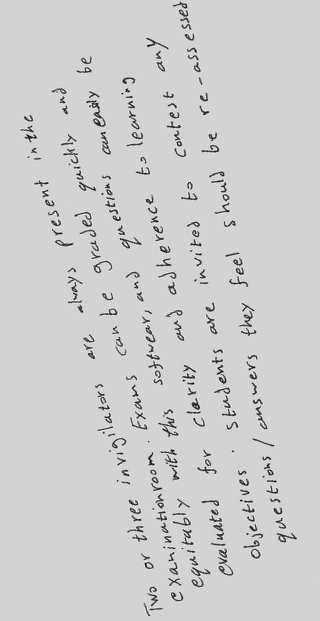 Two or three invigilators are always present in the
exaninationroom. Exams can be graded quickly and
equitably with this softwear, and questions can easily be
evaluated for clarity and adherence to learning
objectives. Students are invited to contest any
questions/answers they feel should be re-assessed